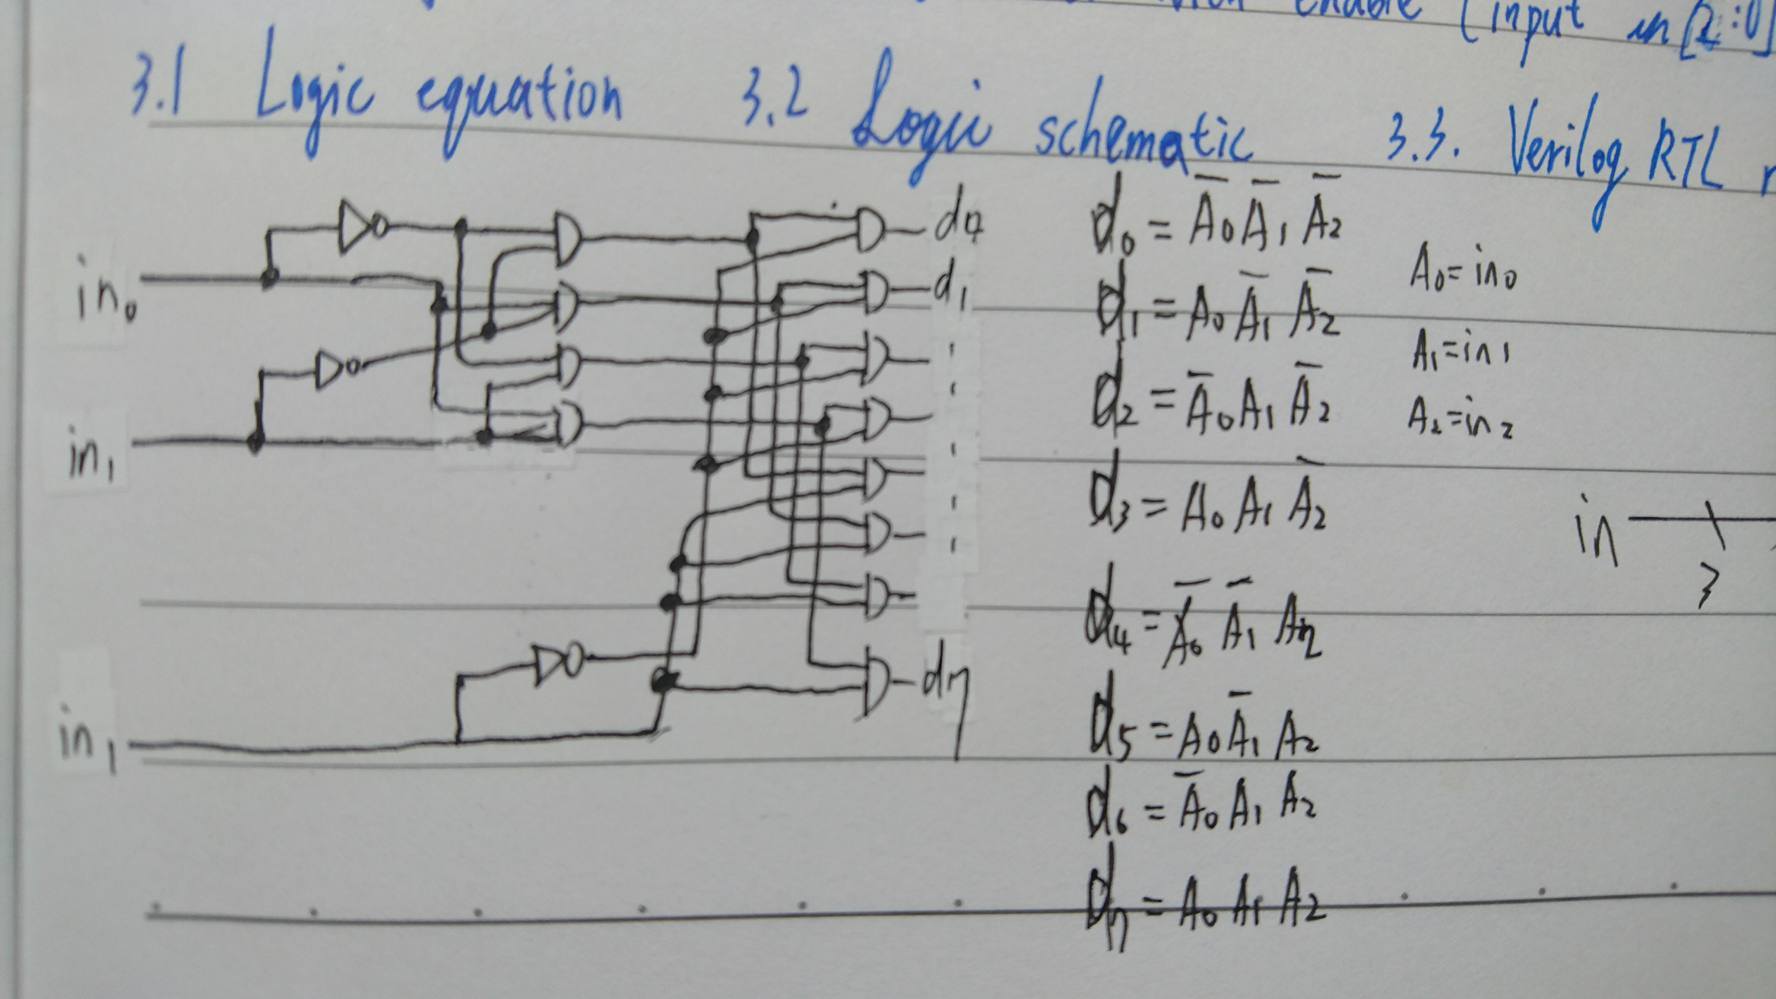 enable (input in[2:0]
3.1 Logic equation 3.2 Logic schematic 3.3. Verilog RTL
in₀
in₁
in₁
d₁
d₀ = A̅₀ A̅₁ A̅₂
d₁ = A₀ A̅₁ A̅₂
d₂ = A̅₀ A₁ A̅₂
d₃ = A₀ A₁ A̅₂
d₄ = A̅₀ A̅₁ A₂
d₅ = A₀ A̅₁ A₂
d₆ = A̅₀ A₁ A₂
d₇ = A₀ A₁ A₂
d₇
A₀ = in₀
A₁ = in₁
A₂ = in₂
in
3